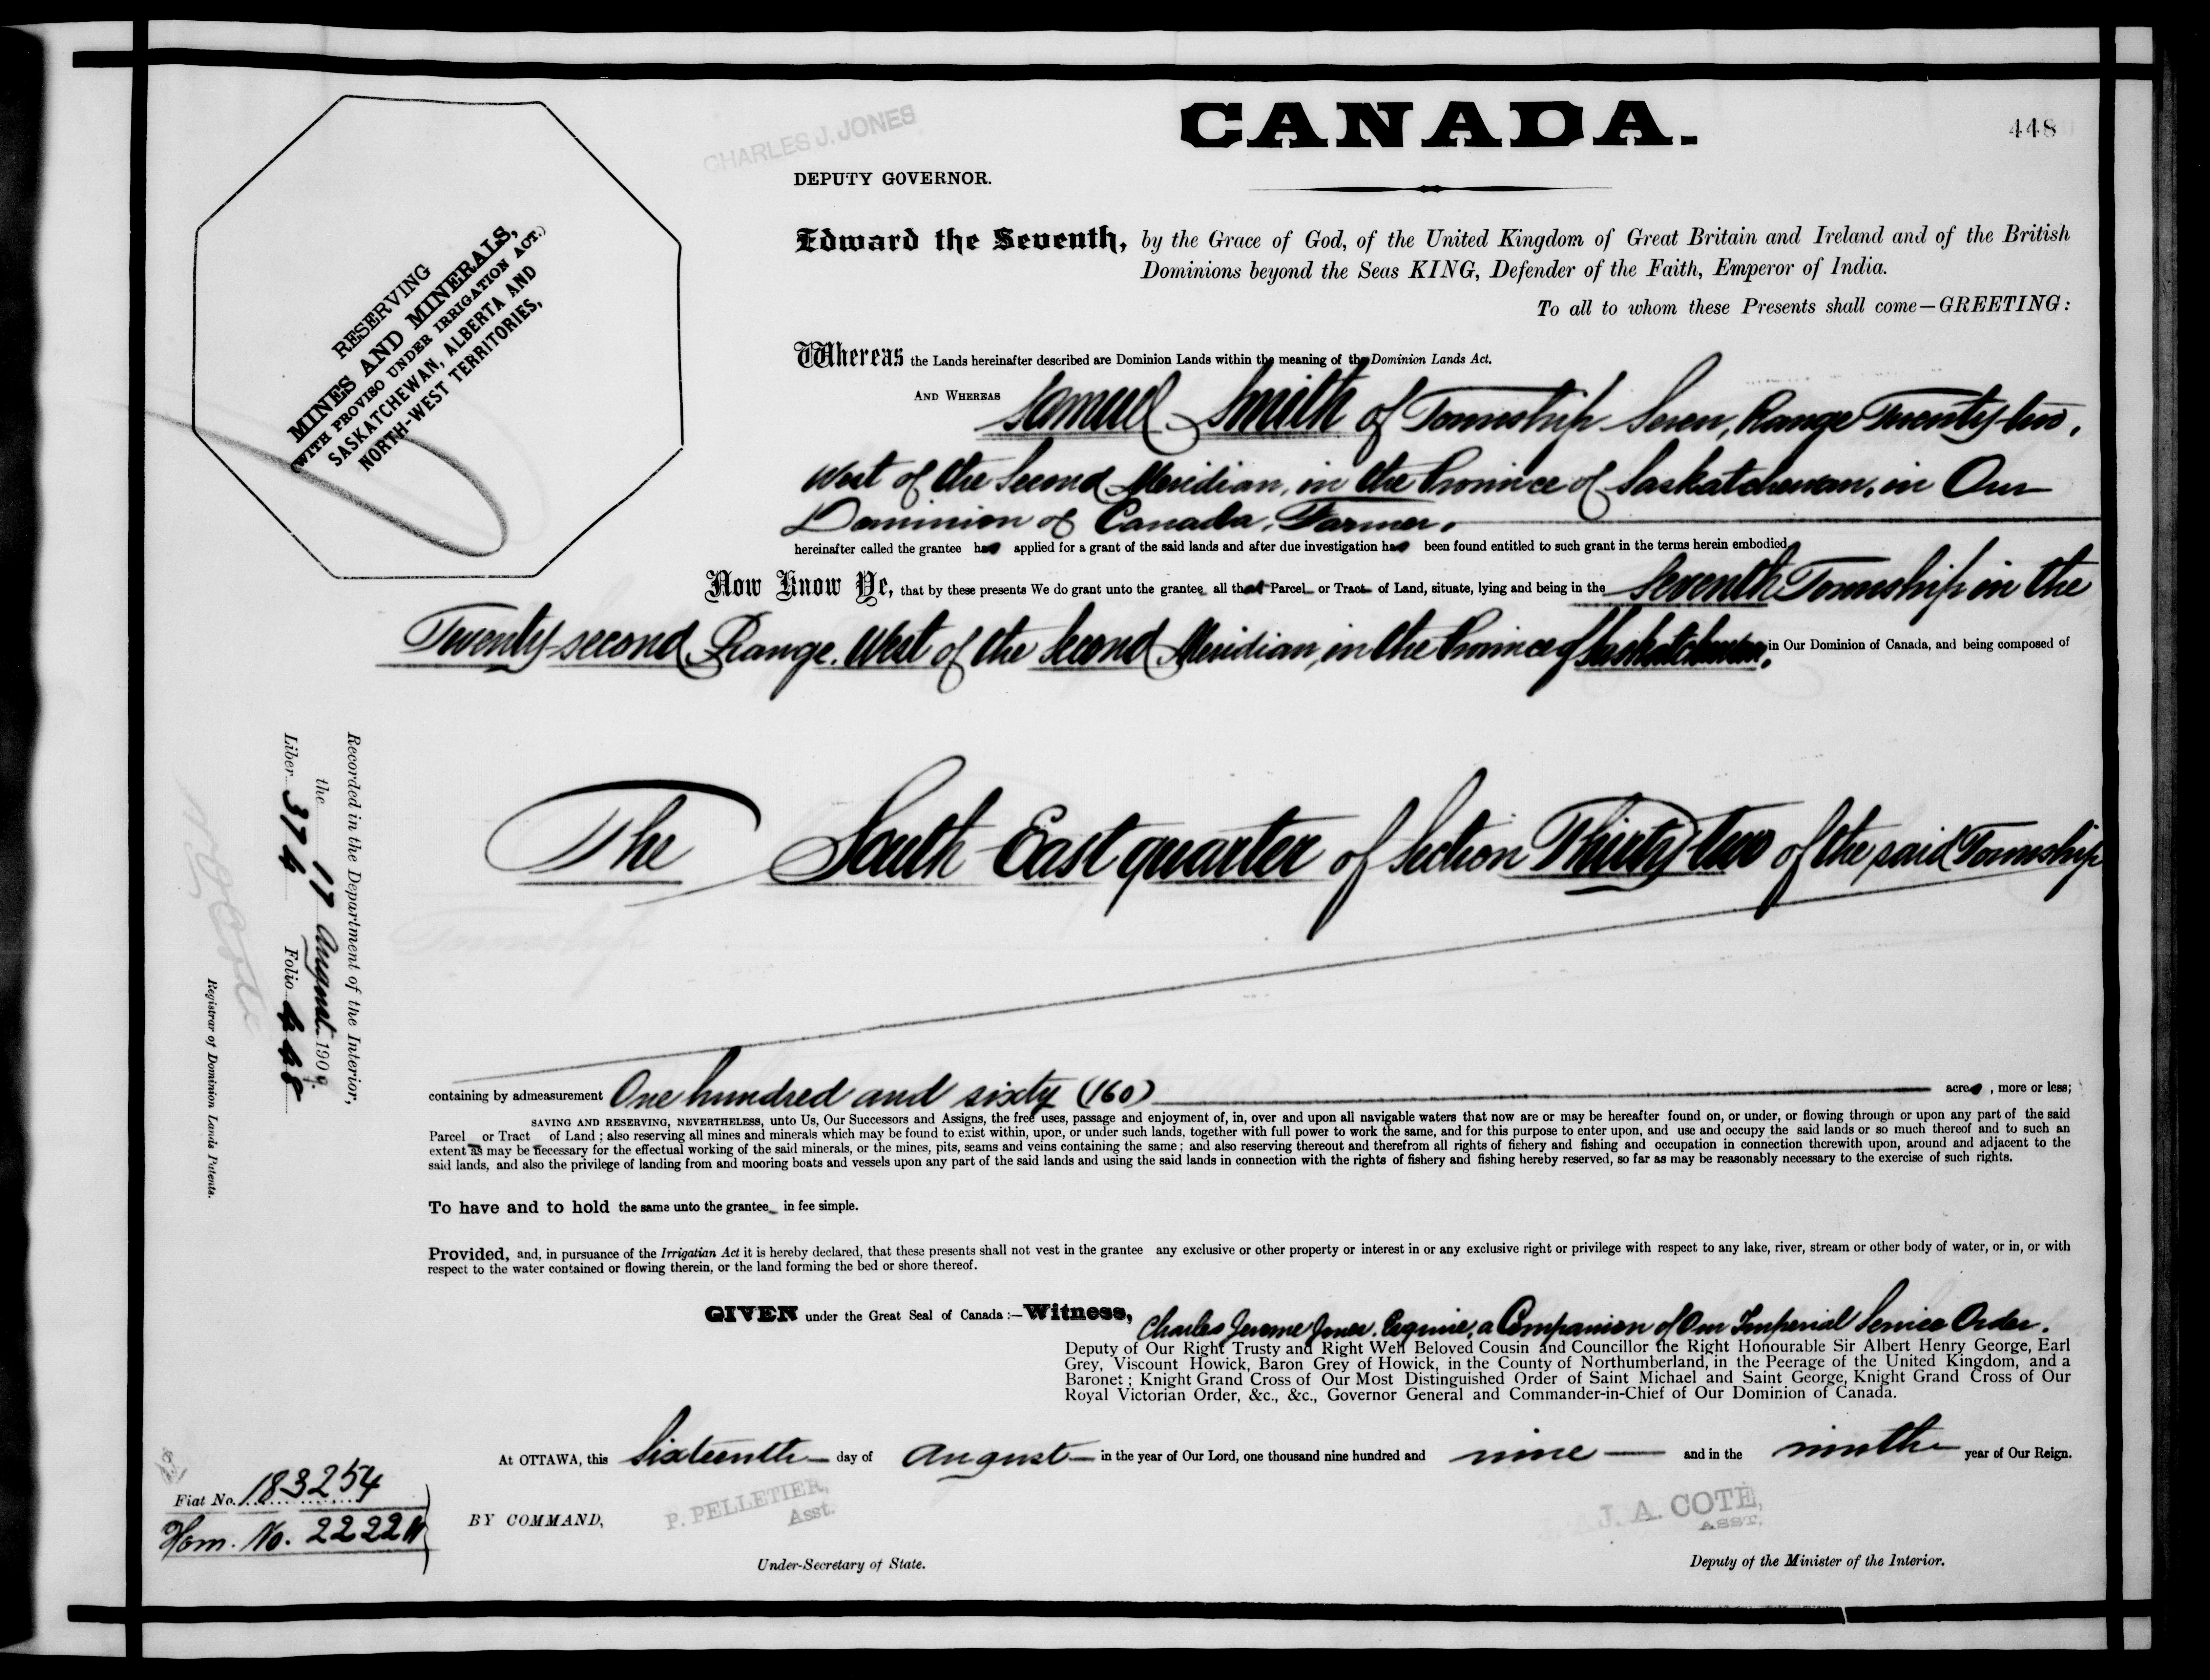 CANADA.
448
CHARLES J. JONES
DEPUTY GOVERNOR.
RESERVING
MINES AND MINERALS,
(WITH PROVISO UNDER IRRIGATION ACT.)
SASKATCHEWAN, ALBERTA AND
NORTH-WEST TERRITORIES,
Edward the Seventh, by the Grace of God, of the United Kingdom of Great Britain and Ireland and of the British
Dominions beyond the Seas KING, Defender of the Faith, Emperor of India.
To all to whom these Presents shall come—GREETING:
Whereas the Lands hereinafter described are Dominion Lands within the meaning of the Dominion Lands Act.
AND WHEREAS Samuel Smith of Township Seven, Range Twenty-two,
West of the Second Meridian, in the Province of Saskatchewan, in Our
Dominion of Canada, Farmer,
hereinafter called the grantee has applied for a grant of the said lands and after due investigation has been found entitled to such grant in the terms herein embodied
Now Know Ye, that by these presents We do grant unto the grantee all that Parcel or Tract of Land, situate, lying and being in the Seventh Township in the
Twenty-second Range, West of the Second Meridian, in the Province of Saskatchewan, in Our Dominion of Canada, and being composed of
The South East quarter of Section Thirty-two of the said Township
containing by admeasurement One hundred and sixty (160) acres, more or less;
SAVING AND RESERVING, NEVERTHELESS, unto Us, Our Successors and Assigns, the free uses, passage and enjoyment of, in, over and upon all navigable waters that now are or may be hereafter found on, or under, or flowing through or upon any part of the said
Parcel or Tract of Land; also reserving all mines and minerals which may be found to exist within, upon, or under such lands, together with full power to work the same, and for this purpose to enter upon, and use and occupy the said lands or so much thereof and to such an
extent as may be necessary for the effectual working of the said minerals, or the mines, pits, seams and veins containing the same; and also reserving thereout and therefrom all rights of fishery and fishing and occupation in connection therewith upon, around and adjacent to the
said lands, and also the privilege of landing from and mooring boats and vessels upon any part of the said lands and using the said lands in connection with the rights of fishery and fishing hereby reserved, so far as may be reasonably necessary to the exercise of such rights.
To have and to hold the same unto the grantee in fee simple.
Provided, and, in pursuance of the Irrigatian Act it is hereby declared, that these presents shall not vest in the grantee any exclusive or other property or interest in or any exclusive right or privilege with respect to any lake, river, stream or other body of water, or in, or with
respect to the water contained or flowing therein, or the land forming the bed or shore thereof.
GIVEN under the Great Seal of Canada:—Witness, Charles Jerome Jones, Esquire, a Companion of Our Imperial Service Order.
Deputy of Our Right Trusty and Right Well Beloved Cousin and Councillor the Right Honourable Sir Albert Henry George, Earl
Grey, Viscount Howick, Baron Grey of Howick, in the County of Northumberland, in the Peerage of the United Kingdom, and a
Baronet; Knight Grand Cross of Our Most Distinguished Order of Saint Michael and Saint George, Knight Grand Cross of Our
Royal Victorian Order, &c., &c., Governor General and Commander-in-Chief of Our Dominion of Canada.
At OTTAWA, this Sixteenth day of August in the year of Our Lord, one thousand nine hundred and nine and in the ninth year of Our Reign.
BY COMMAND,
P. PELLETIER,
Asst.
Under-Secretary of State.
J. A. COTE,
ASST.
Deputy of the Minister of the Interior.
Recorded in the Department of the Interior,
the 17 August 1909.
Liber 374 Folio 448
Registrar of Dominion Lands Patents.
Fiat No. 183254
Hom. No. 2222